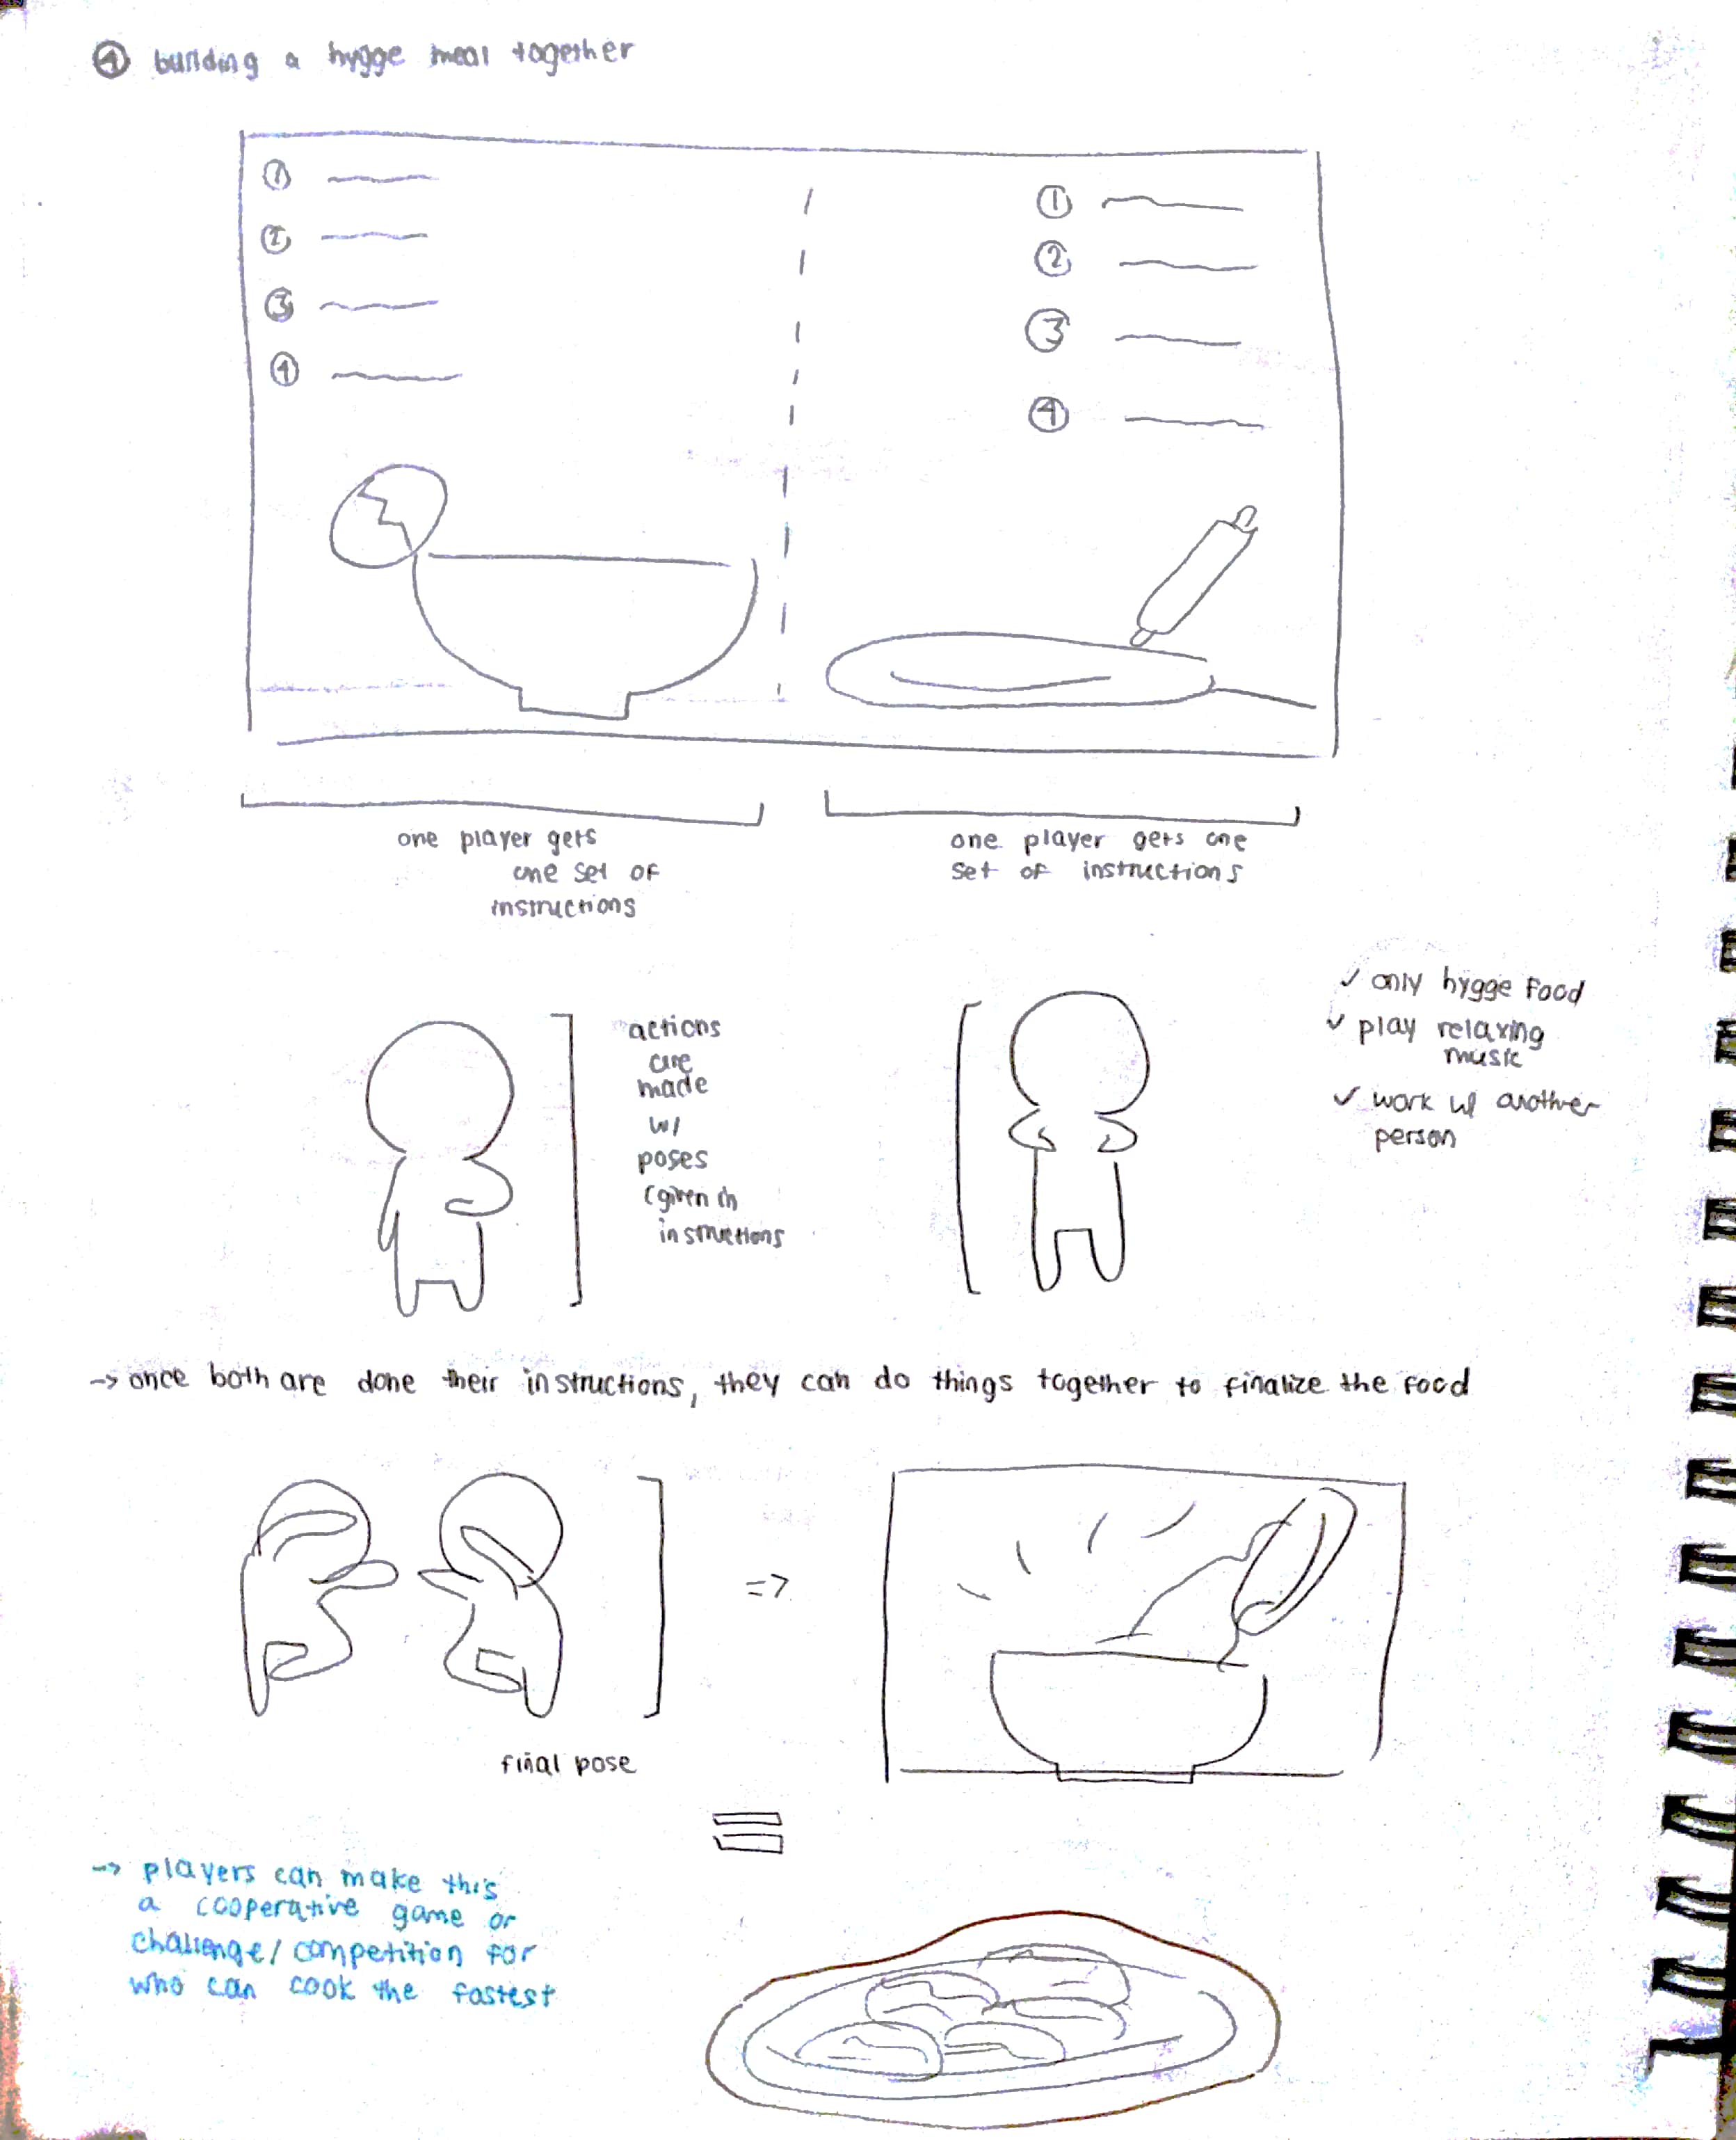 ④ building a hygge meal together
①
②
③
④
①
②
③
④
one player gets
one set of
instructions
one player gets one
set of instructions
actions
are
made
w/
poses
(given in
instructions
✓ only hygge food
✓ play relaxing
music
✓ work w/ another
person
-> once both are done their instructions, they can do things together to finalize the food
=>
final pose
-> players can make this
a cooperative game or
challenge/competition for
who can cook the fastest